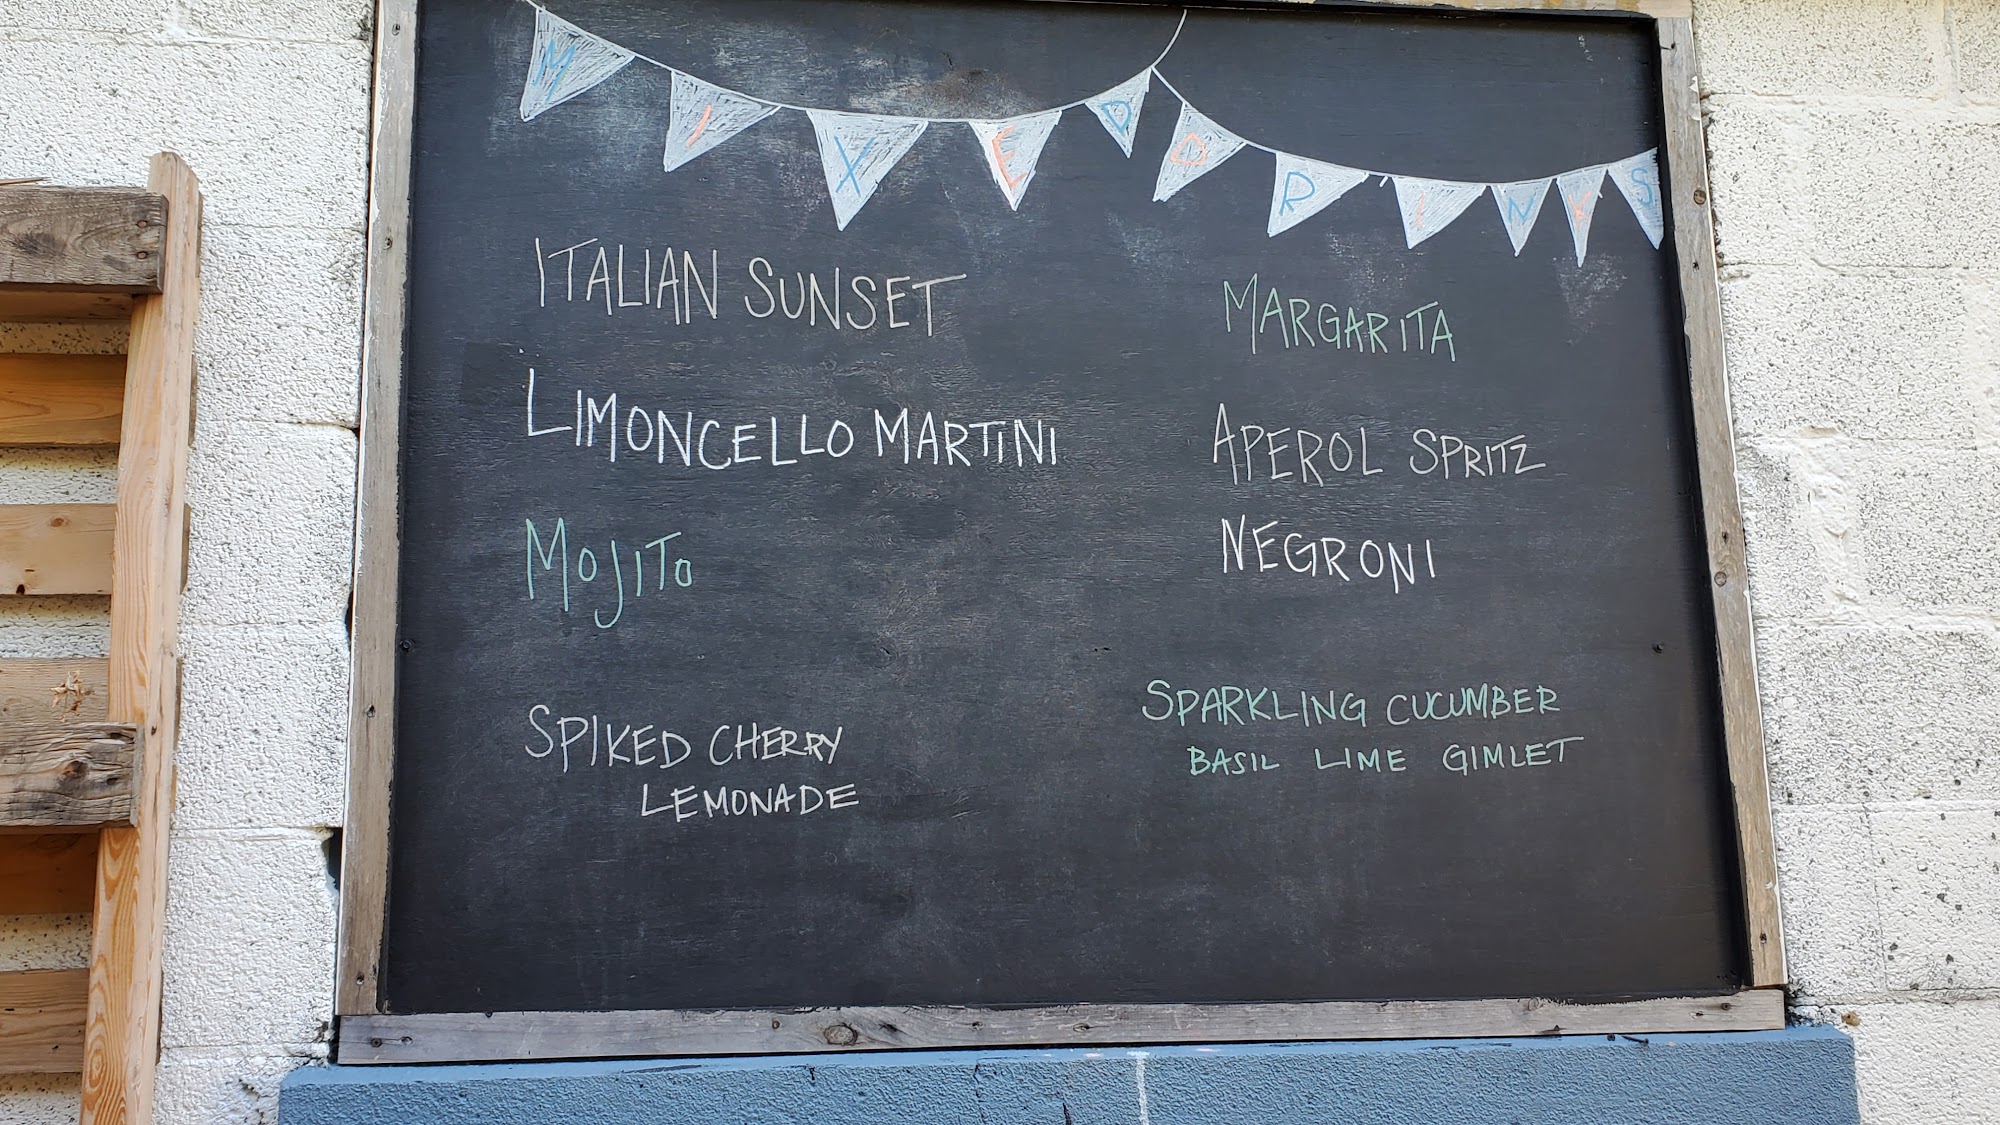 MIXED DRINKS
ITALIAN SUNSET
LIMONCELLO MARTINI
MOJITO
SPIKED CHERRY
LEMONADE
MARGARITA
APEROL SPRITZ
NEGRONI
SPARKLING CUCUMBER
BASIL LIME GIMLET